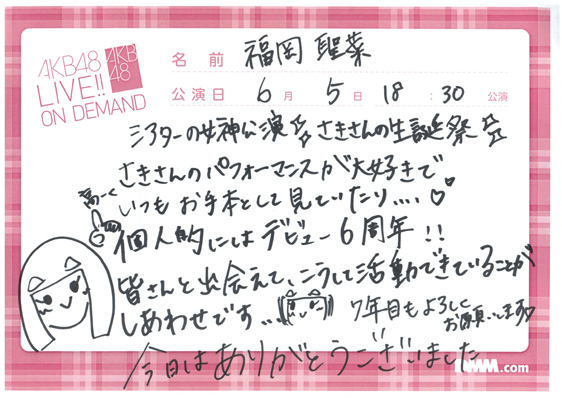 AKB48
LIVE!!
ON DEMAND
AKB
48
名前 福岡 聖菜
公演日 6月 5日 18:30 公演
シアターの女神公演☆さきさんの生誕祭☆
さきさんのパフォーマンスが大好きで
いつもお手本として見ていたり....♡♡
個人的にはデビュー6周年!!
皆さんと出会えて、こうして活動できていることが
しあわせです...
7年目もよろしく
お願いします
今日はありがとうございました
DMM.com